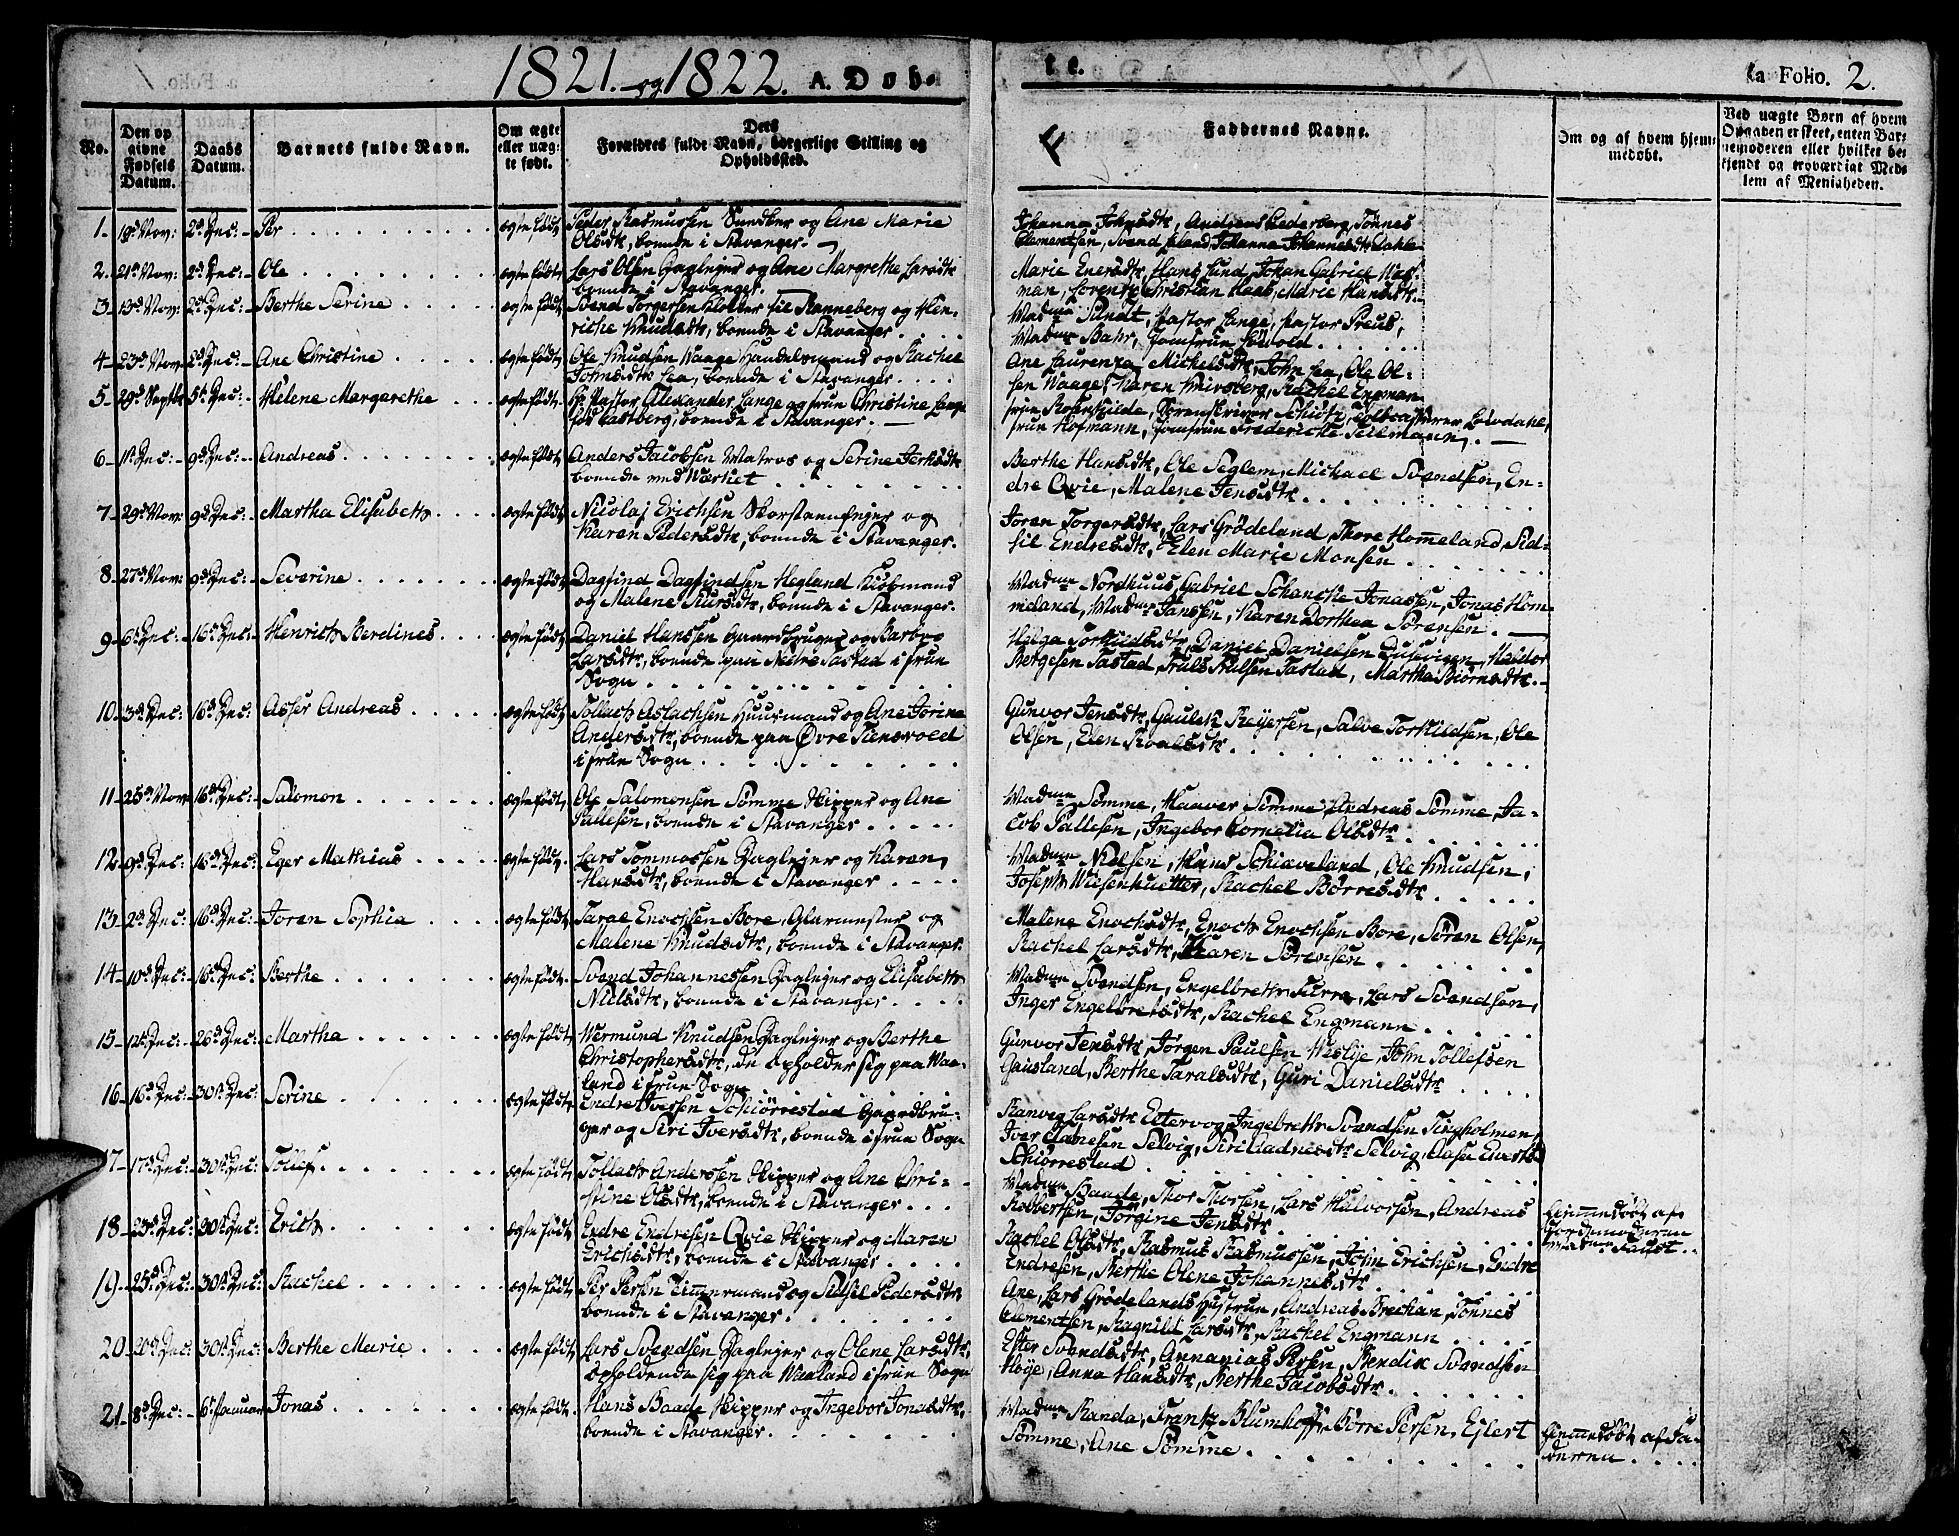 1821. og 1822. A. Døb-
te.
a Folio. 2.
No.
Den opgivne Fødsels Datum.
Daabs Datum.
Barnets fulde Navn.
Om ægte eller uægte født.
Dets Forældres fulde Navn, borgerlige Stilling og Opholdssted.
Faddernes Navne.
Om og af hvem hjemmedøbt.
Ved uægte Børn af hvem Opgaven er skeet, enten Barnemoderen eller hvilket bekjendt og troværdigt Medlem af Menigheden.
1. 19de Nov: 2de Dec: Per ægte født Peder Rasmussen Sundbye og Ane Marie
Olsdtr, boende i Stavanger.
Johanna Johnsdtr, Andreas Cederberg, Tönnes
Clementsen, Svend Eland, Johanna Johannesdtr Dahle
2. 21de Nov: 2de Dec: Ole ægte født Lars Olsen Daglejer og Ane Margrethe Larsdtr
boende i Stavanger.
Marie Enersdtr, Hans Lund, Johan Gabriel
man, Lorentz Christian Haas, Marie Hansdtr.
3. 13de Nov: 2de Dec: Berthe Serine ægte født Svend Torgersen Klokker til Ranneberg og Hen-
riche Knudsdtr, boende i Stavanger
Madme Sundt, Pastor Lange, Pastor Preus,
Madme Bahr, Jomfrue Löwold.
4. 23de Nov: 2de Dec: Ane Christine ægte født Ole Knudsen Waage Handelsmand og Rachel
Johnsdtr Lea, boende i Stavanger
Ane Laurenza Mickelsdtr, John Lea, Ole Ol-
sen Waage, Karen Kiirsberg, Rachel Engman
5. 29de Septbr 5te Dec: Helene Margarethe ægte født Hr Pastor Alexander Lange og frue Christine Lange
föd Castberg, boende i Stavanger.
frue Rosenkilde, Sorenskriver Schiötz, Toldcasserer Lövdahl,
frue Hofmann, Jomfrue Fredericke Tellmann.
6. 1ste Dec: 9de Dec: Andreas ægte født Anders Jacobsen Matros og Serine Jerksdtr
boende ved Værket
Berthe Hansdtr, Ole Seglem, Mickael Svendsen, En-
dre Qvie, Malene Jensdtr.
7. 29de Nov: 9de Dec: Martha Elisabeth ægte født Nicolaj Erichsen Skorsteenfejer og
Karen Pedersdtr, boende i Stavanger.
Joren Torgersdtr, Lars Grödeland, Thore Homeland, Sid-
sil Endresdtr, Elen Marie Monsen
8. 27de Nov: 9de Dec: Severine ægte født Dagfind Dagfindsen Hegland Kiöbmand
og Malene Siursdtr, boende i Stavanger.
Madme Nordhuus, Gabriel Schancke Jonassen, Jonas Hom-
meland, Madme Janssen, Karen Dorthea Sörensen.
9. 6te Dec: 16de Dec: Henrich Berdines ægte født Daniel Hanssen Gaardbruger og Barbro
Larsdtr, boende paa Nedre Tastad i frue
Sogn
Helga Torkildsdtr, Daniel Danielsen Dusevigen, Haldor
Bergesen Tastad, Truls Trulsen Tastad, Martha Biörnsdtr.
10. 3de Dec: 16de Dec: Asser Andreas ægte født Tollach Aslachsen Huusmand og Ane Jorine
Andersdtr, boende paa Øvre Tiensvold
i frue Sogn
Gunvor Jensdtr, Gaulek Reiersen, Salve Torkildsen, Ole
Olsen, Elen Roalsdtr.
11. 25de Nov: 16de Dec: Salomon ægte født Ole Salomonsen Sömme Skipper og Ane
Pallesen, boende i Stavanger
Madme Sömme, Haaver Sömme, Andreas Sömme, Ja-
cob Pallesen, Ingebor Cornelia Olsdtr.
12. 9de Dec: 16de Dec: Eger Mathias ægte født Lars Tommassen Daglejer og Karen
Hansdtr, boende i Stavanger
Madme Nielsen, Hans Schiæveland, Ole Knudsen,
Joseph Weisenhuetter, Rachel Börresdtr.
13. 2de Dec: 16de Dec: Joren Sophia ægte født Taral Enochsen Bore, Glarmester og
Malene Knudsdtr, boende i Stavanger.
Malene Enochsdtr, Enoch Enochsen Bore, Sören Olsen,
Rachel Larsdtr, Karen Sörensen
14. 10de Dec: 16de Dec: Berthe ægte født Svend Johannessen Daglejer og Elisabeth
Nielsdtr, boende i Stavanger
Madme Svendsen, Engelbreth Surra, Lars Svendsen,
Inger Engelbretsdtr, Rachel Engmann
15. 12te Dec: 26de Dec: Martha ægte født Wermund Knudsen Daglejer og Berthe
Christophersdtr, de opholder sig paa Waa-
land i frue Sogn
Gunvor Jensdtr, Jörgen Paulsen Weslye, John Tollefsen
Gausland, Berthe Taralsdtr, Guri Danielsdtr
16. 16de Dec: 30te Dec: Serine ægte født Endre Iversen Schiörrestad Gaardbru-
ger og Siri Iversdtr, boende i frue Sogn
Ranveg Larsdtr Edtervog, Ingebreth Svendsen Tingholmen,
Iver Aanesen Selvig, Siri Aadnesdtr Selvig, Aase Evertsdtr
Schiörrestad
17. 17de Dec: 30te Dec: Tollef ægte født Tollach Andersen Skipper og Ane Chri-
stine Olsdtr, boende i Stavanger
Madme Baade, Thor Thorsen, Lars Halvorsen, Andreas
Robertsen, Jörgine Jensdtr
18. 23de Dec: 30te Dec: Erich ægte født Endre Endresen Qvie Skipper og Maren
Erichsdtr, boende i Stavanger
Rachel Olsdtr, Rasmus Rasmussen, John Erichsen, Endre
Endresen, Berthe Olene Johannesdtr
hiemmedöbt af
Jordemoderen
Madme Faust.
19. 25de Dec: 30te Dec: Rachel ægte født Per Persen Timmermand og Sidsil Pedersdtr
boende i Stavanger
Ane, Lars Grödelands Hustrue, Andreas Brechan, Tönnes
Clementsen, Ragnild Larsdtr, Rachel Engmann
20. 20de Dec: 30te Dec: Berthe Marie ægte født Lars Svendsen Daglejer og Olene Larsdtr,
opholdende sig paa Waaland i frue Sogn
Ester Svendsdtr, Annanias Persen, Bendix Svendsen
Höye, Anna Hansdtr, Berthe Jacobsdtr.
21. 8de Dec: 6te Januar Jonas ægte født Hans Baade Skipper og Ingebor Jonasdtr,
boende i Stavanger.
Madme Randa, Frantz Blumhoff, Börre Persen, Ejlert
Sömme, Ane Sömme.
hiemmedöbt af Fa-
deren